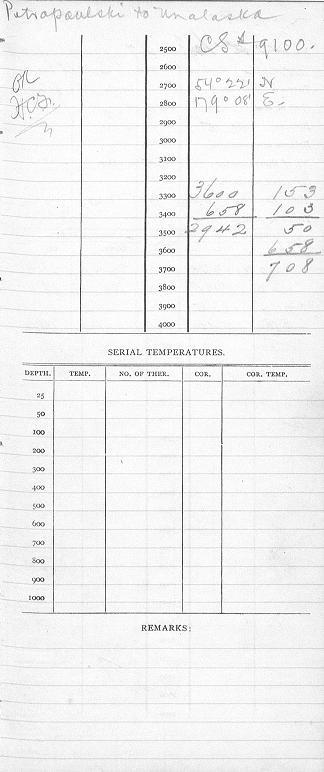 Petrapaulski to Unalaska
2500 CS 9100.
2600
OK 2700 54° 22' N
2800 179° 08' E.
2900
3000
3100
3200
3300 3600 153
3400 658 103
3500 2942 50
3600 658
3700 708
3800
3900
4000
SERIAL TEMPERATURES.
DEPTH. TEMP. NO. OF THER. COR. COR. TEMP.
25
50
100
200
300
400
500
600
700
800
900
1000
REMARKS: